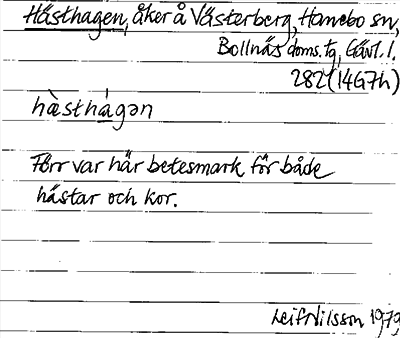 Hästhagen, åker å Västerberg, Hanebo sn,
Bollnäs doms. tg, Gävl. l.
282 (14G7h)
hàsthágən
Förr var här betesmark för både
hästar och kor.
Leif Nilsson 1979